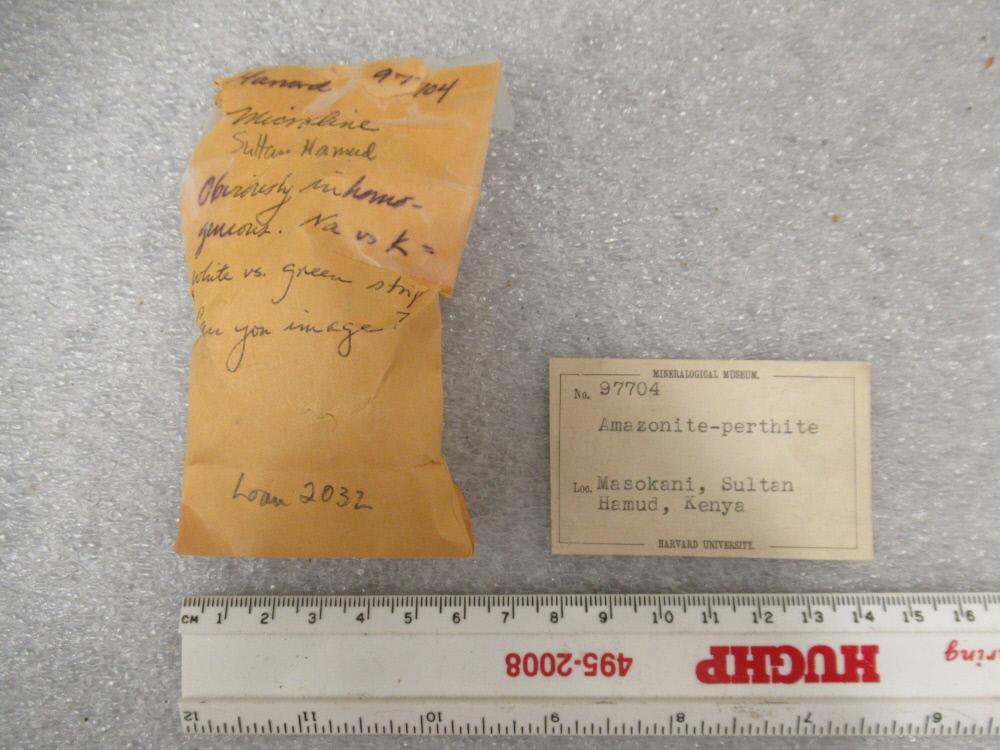 Harvard 97704
Microcline
Sultan Hamud
Obviously inhomo-
geneous. Na vs K =
white vs. green strip
Can you image?
Loan 2032
MINERALOGICAL MUSEUM.
No. 97704
Amazonite-perthite
Loc. Masokani, Sultan
Hamud, Kenya
HARVARD UNIVERSITY.
CM 1 2 3 4 5 6 7 8 9 10 11 12 13 14 15 16
HUGHP 495-2008
ring
12 11 10 9 8 7 6